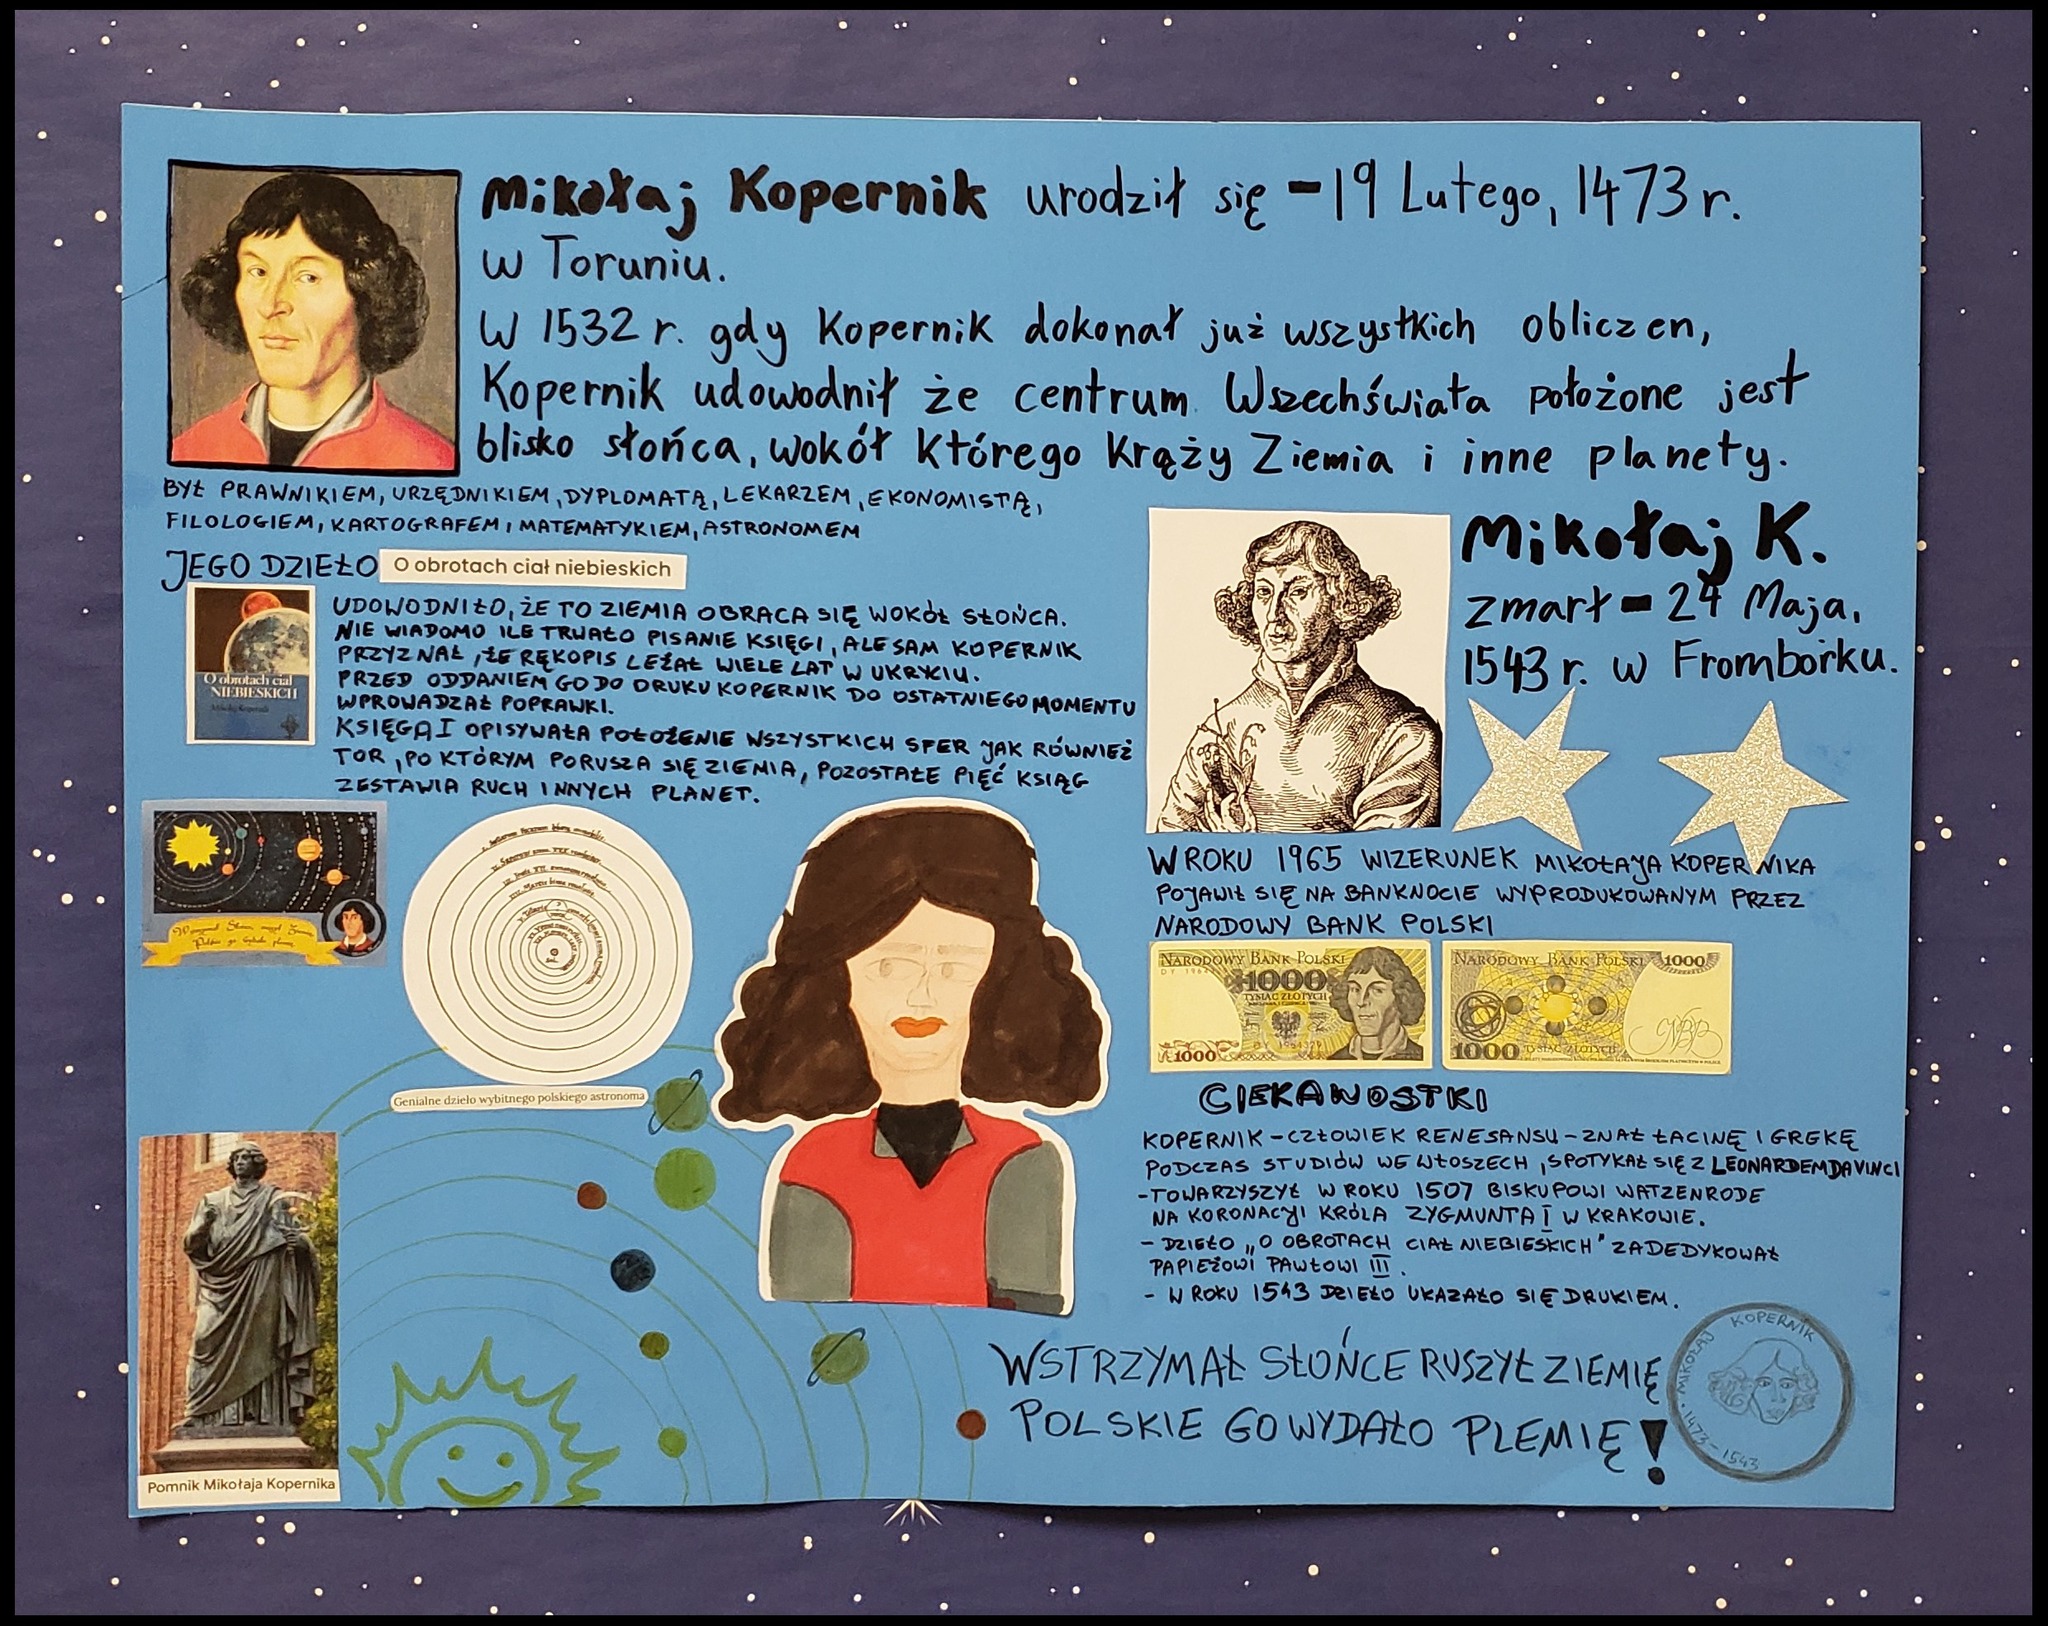 Mikołaj Kopernik urodził się - 19 Lutego, 1473 r.
w Toruniu.
W 1532 r. gdy Kopernik dokonał już wszystkich obliczen,
Kopernik udowodnił że centrum Wszechświata położone jest
blisko słońca, wokół Którego Krąży Ziemia i inne planety.
BYŁ PRAWNIKIEM, URZĘDNIKIEM, DYPLOMATĄ, LEKARZEM, EKONOMISTĄ,
FILOLOGIEM, KARTOGRAFEM, MATEMATYKIEM, ASTRONOMEM
JEGO DZIEŁO O obrotach ciał niebieskich
O obrotach ciał
NIEBIESKICH
Mikołaj Kopernik
UDOWODNIŁO, ŻE TO ZIEMIA OBRACA SIĘ WOKÓŁ SŁOŃCA.
NIE WIADOMO ILE TRWAŁO PISANIE KSIĘGI, ALE SAM KOPERNIK
PRZYZNAŁ, ŻE RĘKOPIS LEŻAŁ WIELE LAT W UKRYCIU.
PRZED ODDANIEM GO DO DRUKU KOPERNIK DO OSTATNIEGO MOMENTU
WPROWADZAŁ POPRAWKI.
KSIĘGA I OPISYWAŁA POŁOŻENIE WSZYSTKICH SFER JAK RÓWNIEŻ
TOR, PO KTÓRYM PORUSZA SIĘ ZIEMIA, POZOSTAŁE PIĘĆ KSIĄG
ZESTAWIA RUCH INNYCH PLANET.
Mikołaj K.
zmarł - 24 Maja,
1543 r. w Fromborku.
W ROKU 1965 WIZERUNEK MIKOŁAJA KOPERNIKA
POJAWIŁ SIĘ NA BANKNOCIE WYPRODUKOWANYM PRZEZ
NARODOWY BANK POLSKI
NARODOWY BANK POLSKI
1000
TYSIĄC ZŁOTYCH
1000
NARODOWY BANK POLSKI 1000
NBP
1000 TYSIĄC ZŁOTYCH
Genialne dzieło wybitnego polskiego astronoma
Pomnik Mikołaja Kopernika
CIEKAWOSTKI
KOPERNIK - CZŁOWIEK RENESANSU - ZNAŁ ŁACINĘ I GREKĘ
PODCZAS STUDIÓW WE WŁOSZECH, SPOTYKAŁ SIĘ Z LEONARDEM DA VINCI
- TOWARZYSZYŁ W ROKU 1507 BISKUPOWI WATZENRODE
NA KORONACJI KRÓLA ZYGMUNTA I W KRAKOWIE.
- DZIEŁO „O OBROTACH CIAŁ NIEBIESKICH" ZADEDYKOWAŁ
PAPIEŻOWI PAWŁOWI III.
- W ROKU 1543 DZIEŁO UKAZAŁO SIĘ DRUKIEM.
WSTRZYMAŁ SŁOŃCE RUSZYŁ ZIEMIĘ
POLSKIE GO WYDAŁO PLEMIĘ!
MIKOŁAJ KOPERNIK
1473 - 1543